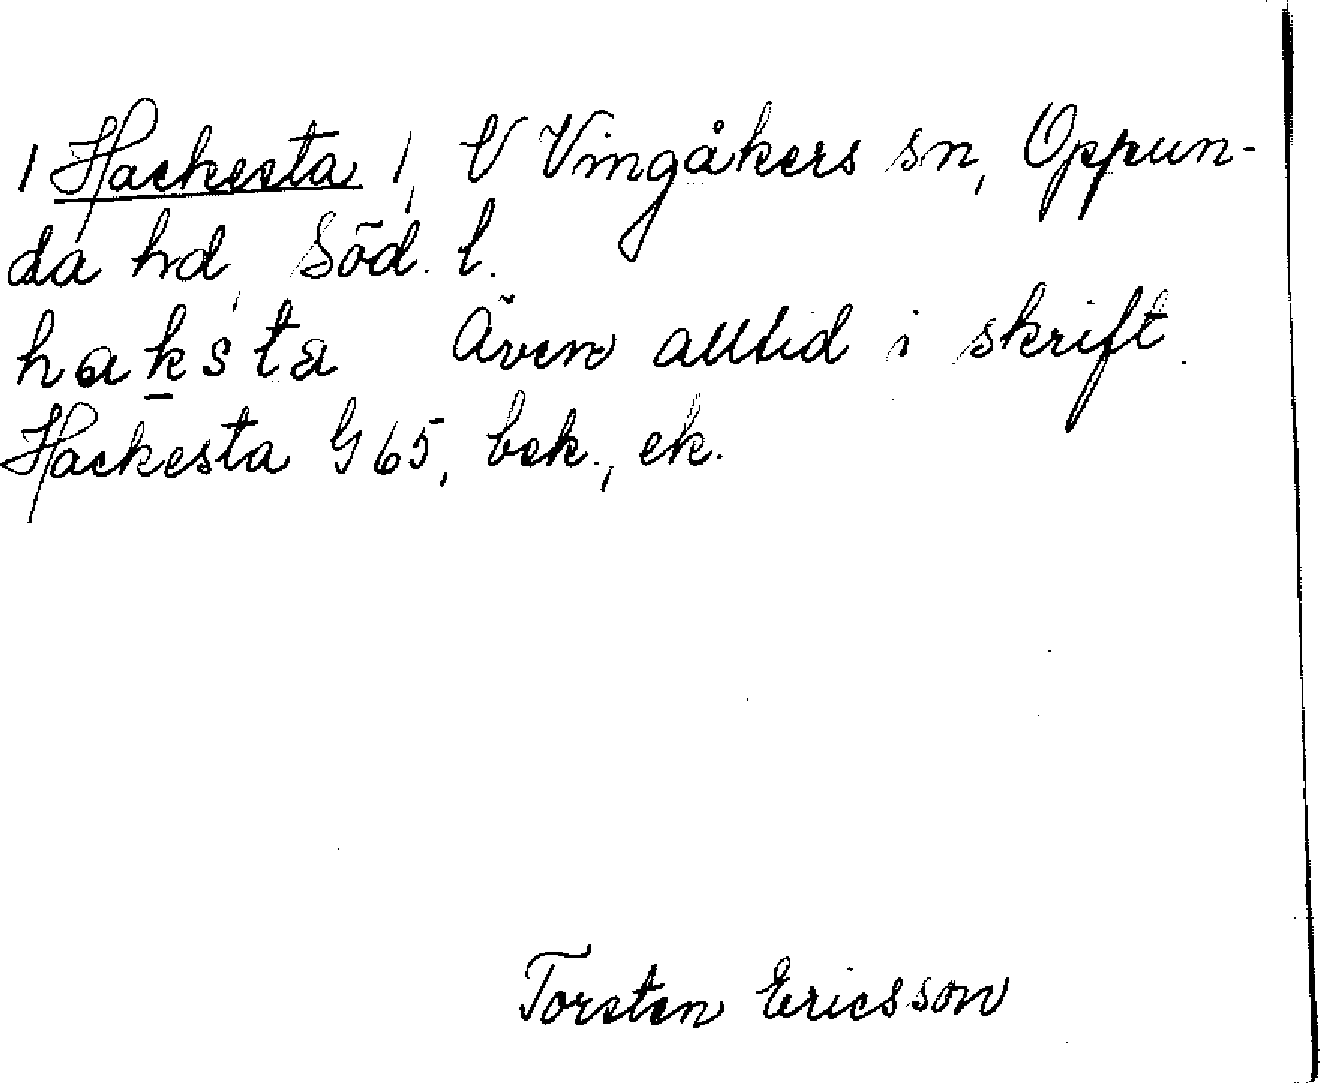 / Hackesta /, V Vingåkers sn, Oppun-
da hd, Söd. l.
haksta Även alltid i skrift.
Hackesta G 65, bek., ek.
Torsten Ericsson